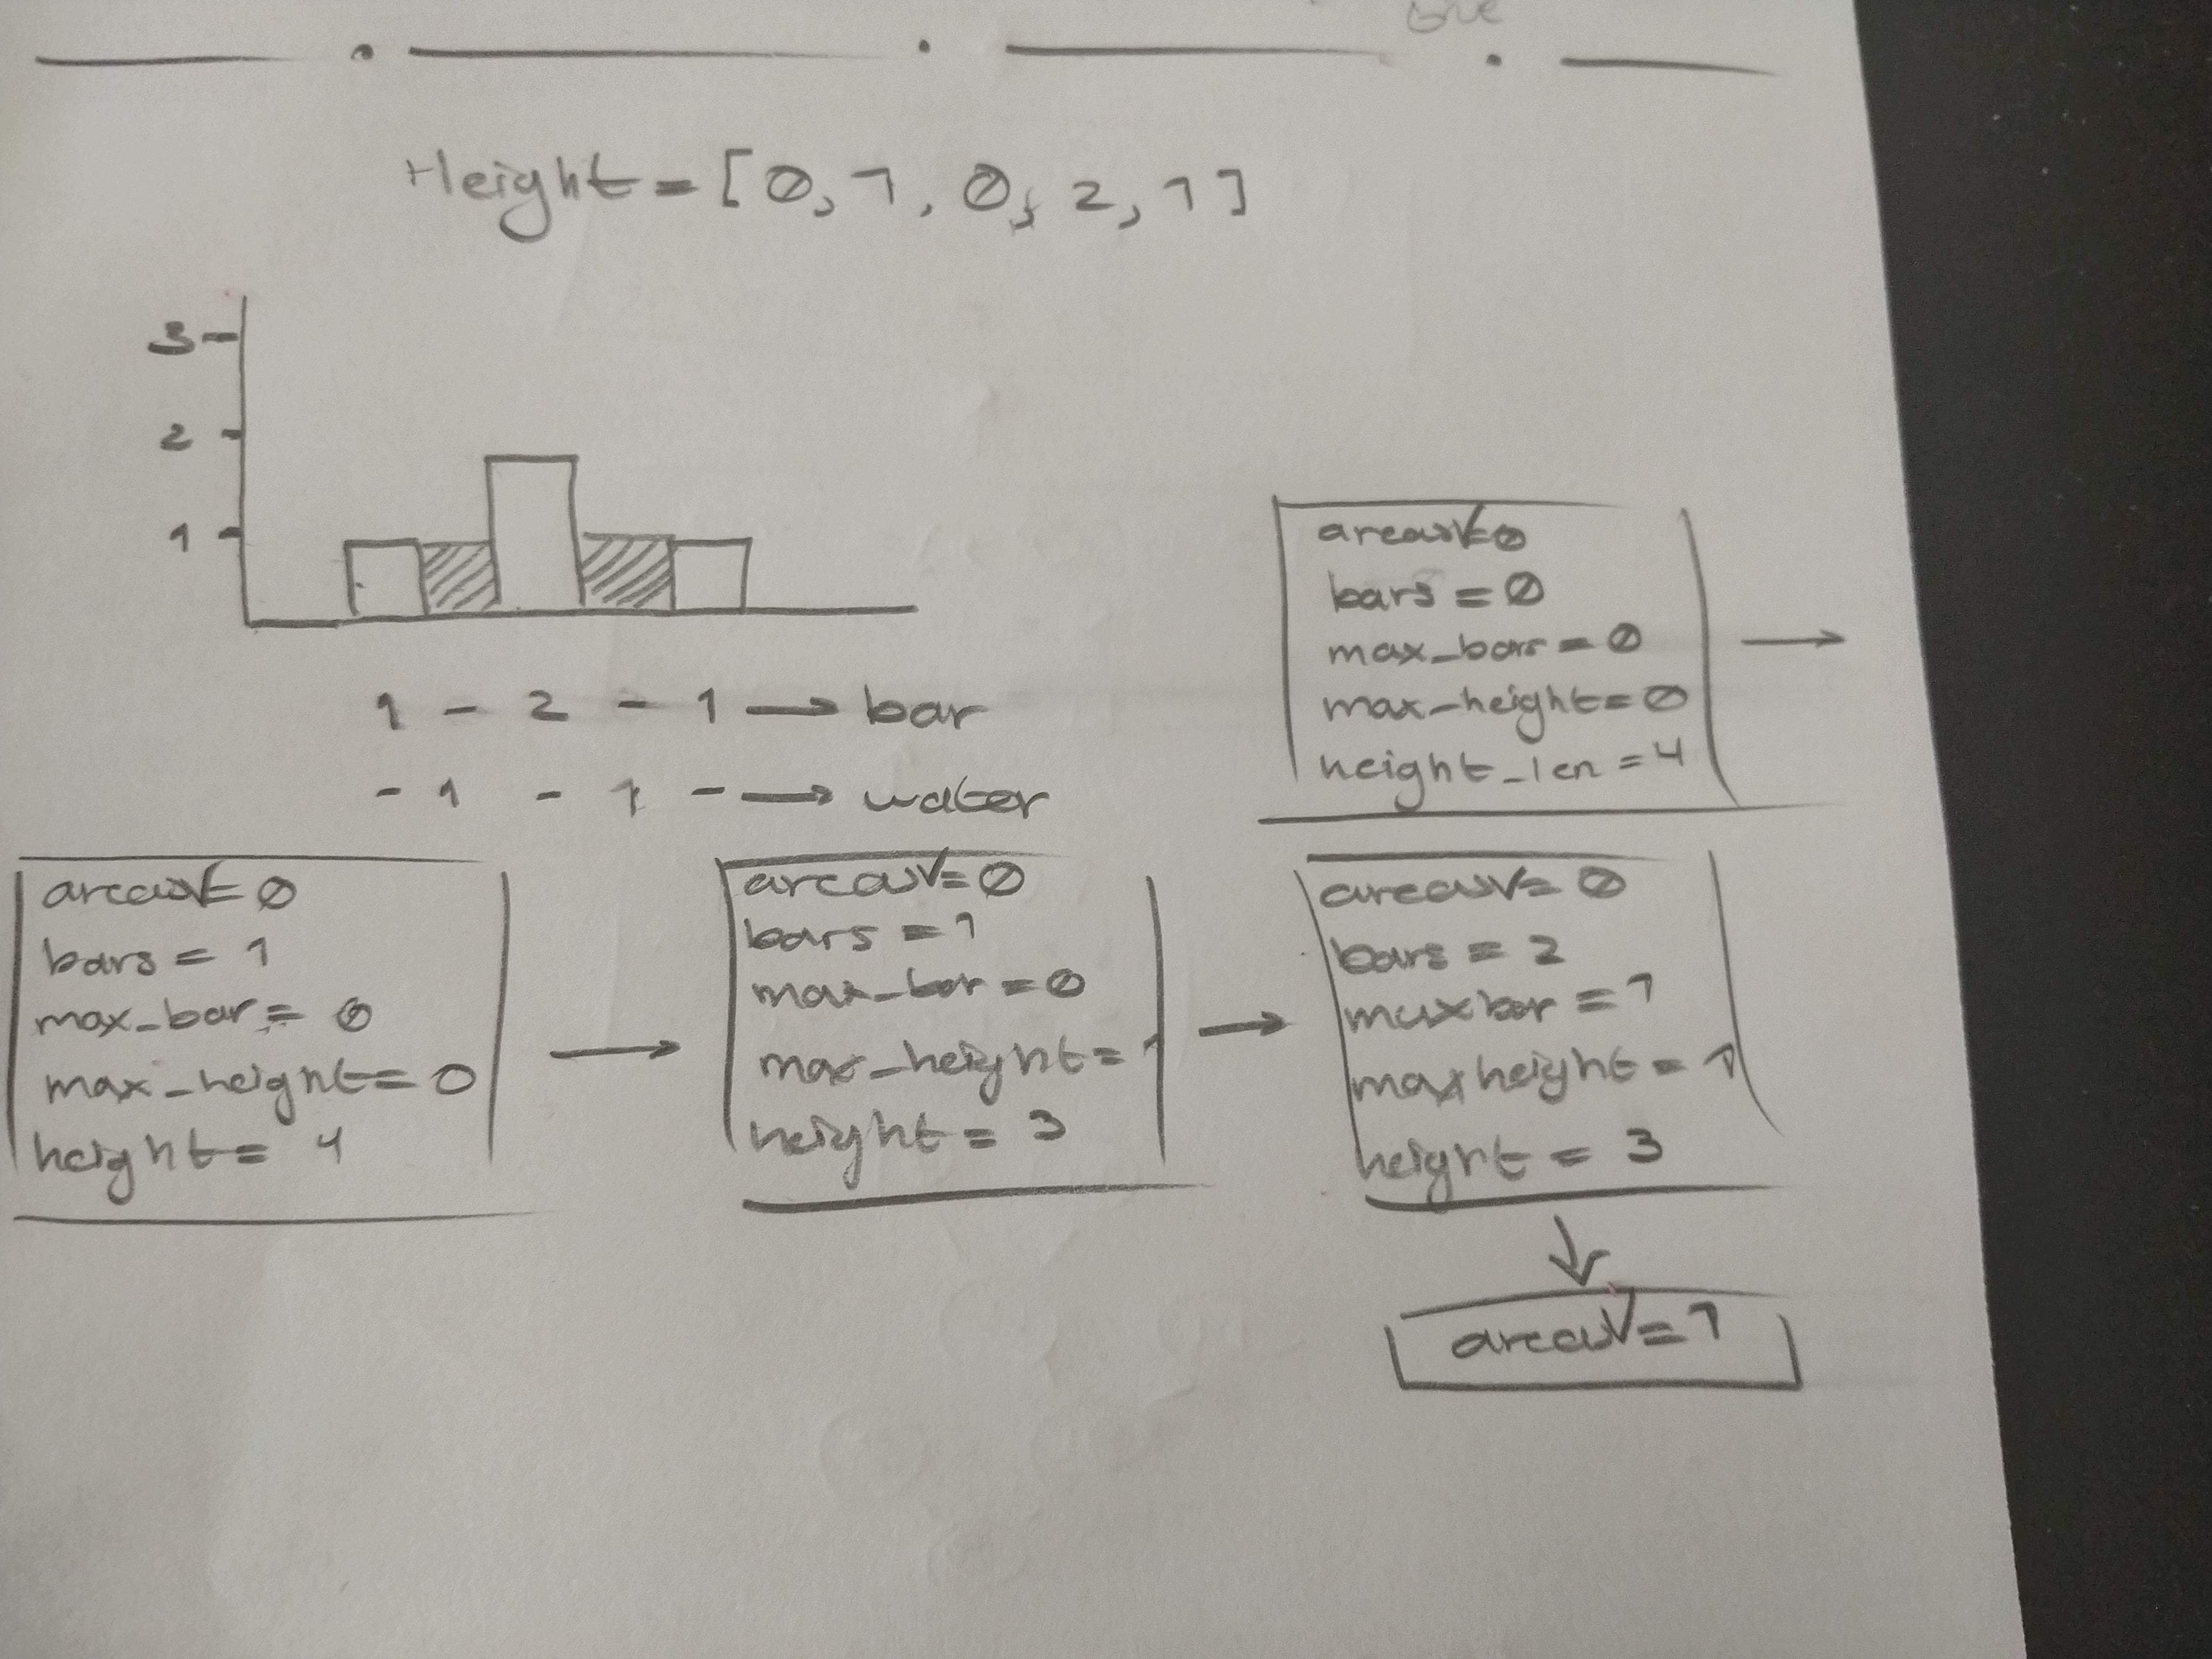 one
Height = [0, 1, 0, 2, 1]
3
2
1
1 - 2 - 1 → bar
- 1 - 1 - → water
areaW=0
bars = 0
max_bar = 0
max_height=0
height_len = 4
→
areaW=0
bars = 1
max_bar = 0
max_height=0
height= 4
→
areaW=0
bars = 1
max_bar = 0
max_height= 1
height = 3
→
areaW= 0
bars = 2
maxbar = 1
maxheight = 1
height = 3
↓
areaW=1